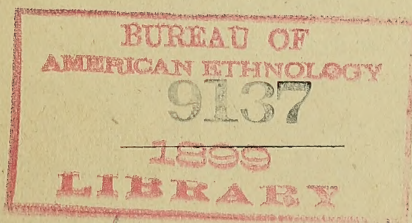 BUREAU OF
AMERICAN ETHNOLOGY
9137
1899
LIBRARY